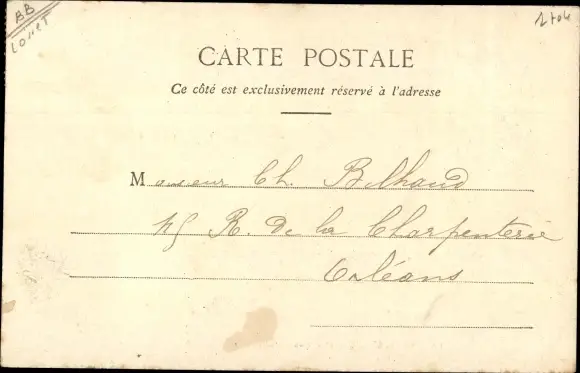 BB
LOIRET
CARTE POSTALE
Ce côté est exclusivement réservé à l'adresse
Monsieur Ch. Bilhaud
45 R. De la Charpenterie
Orléans